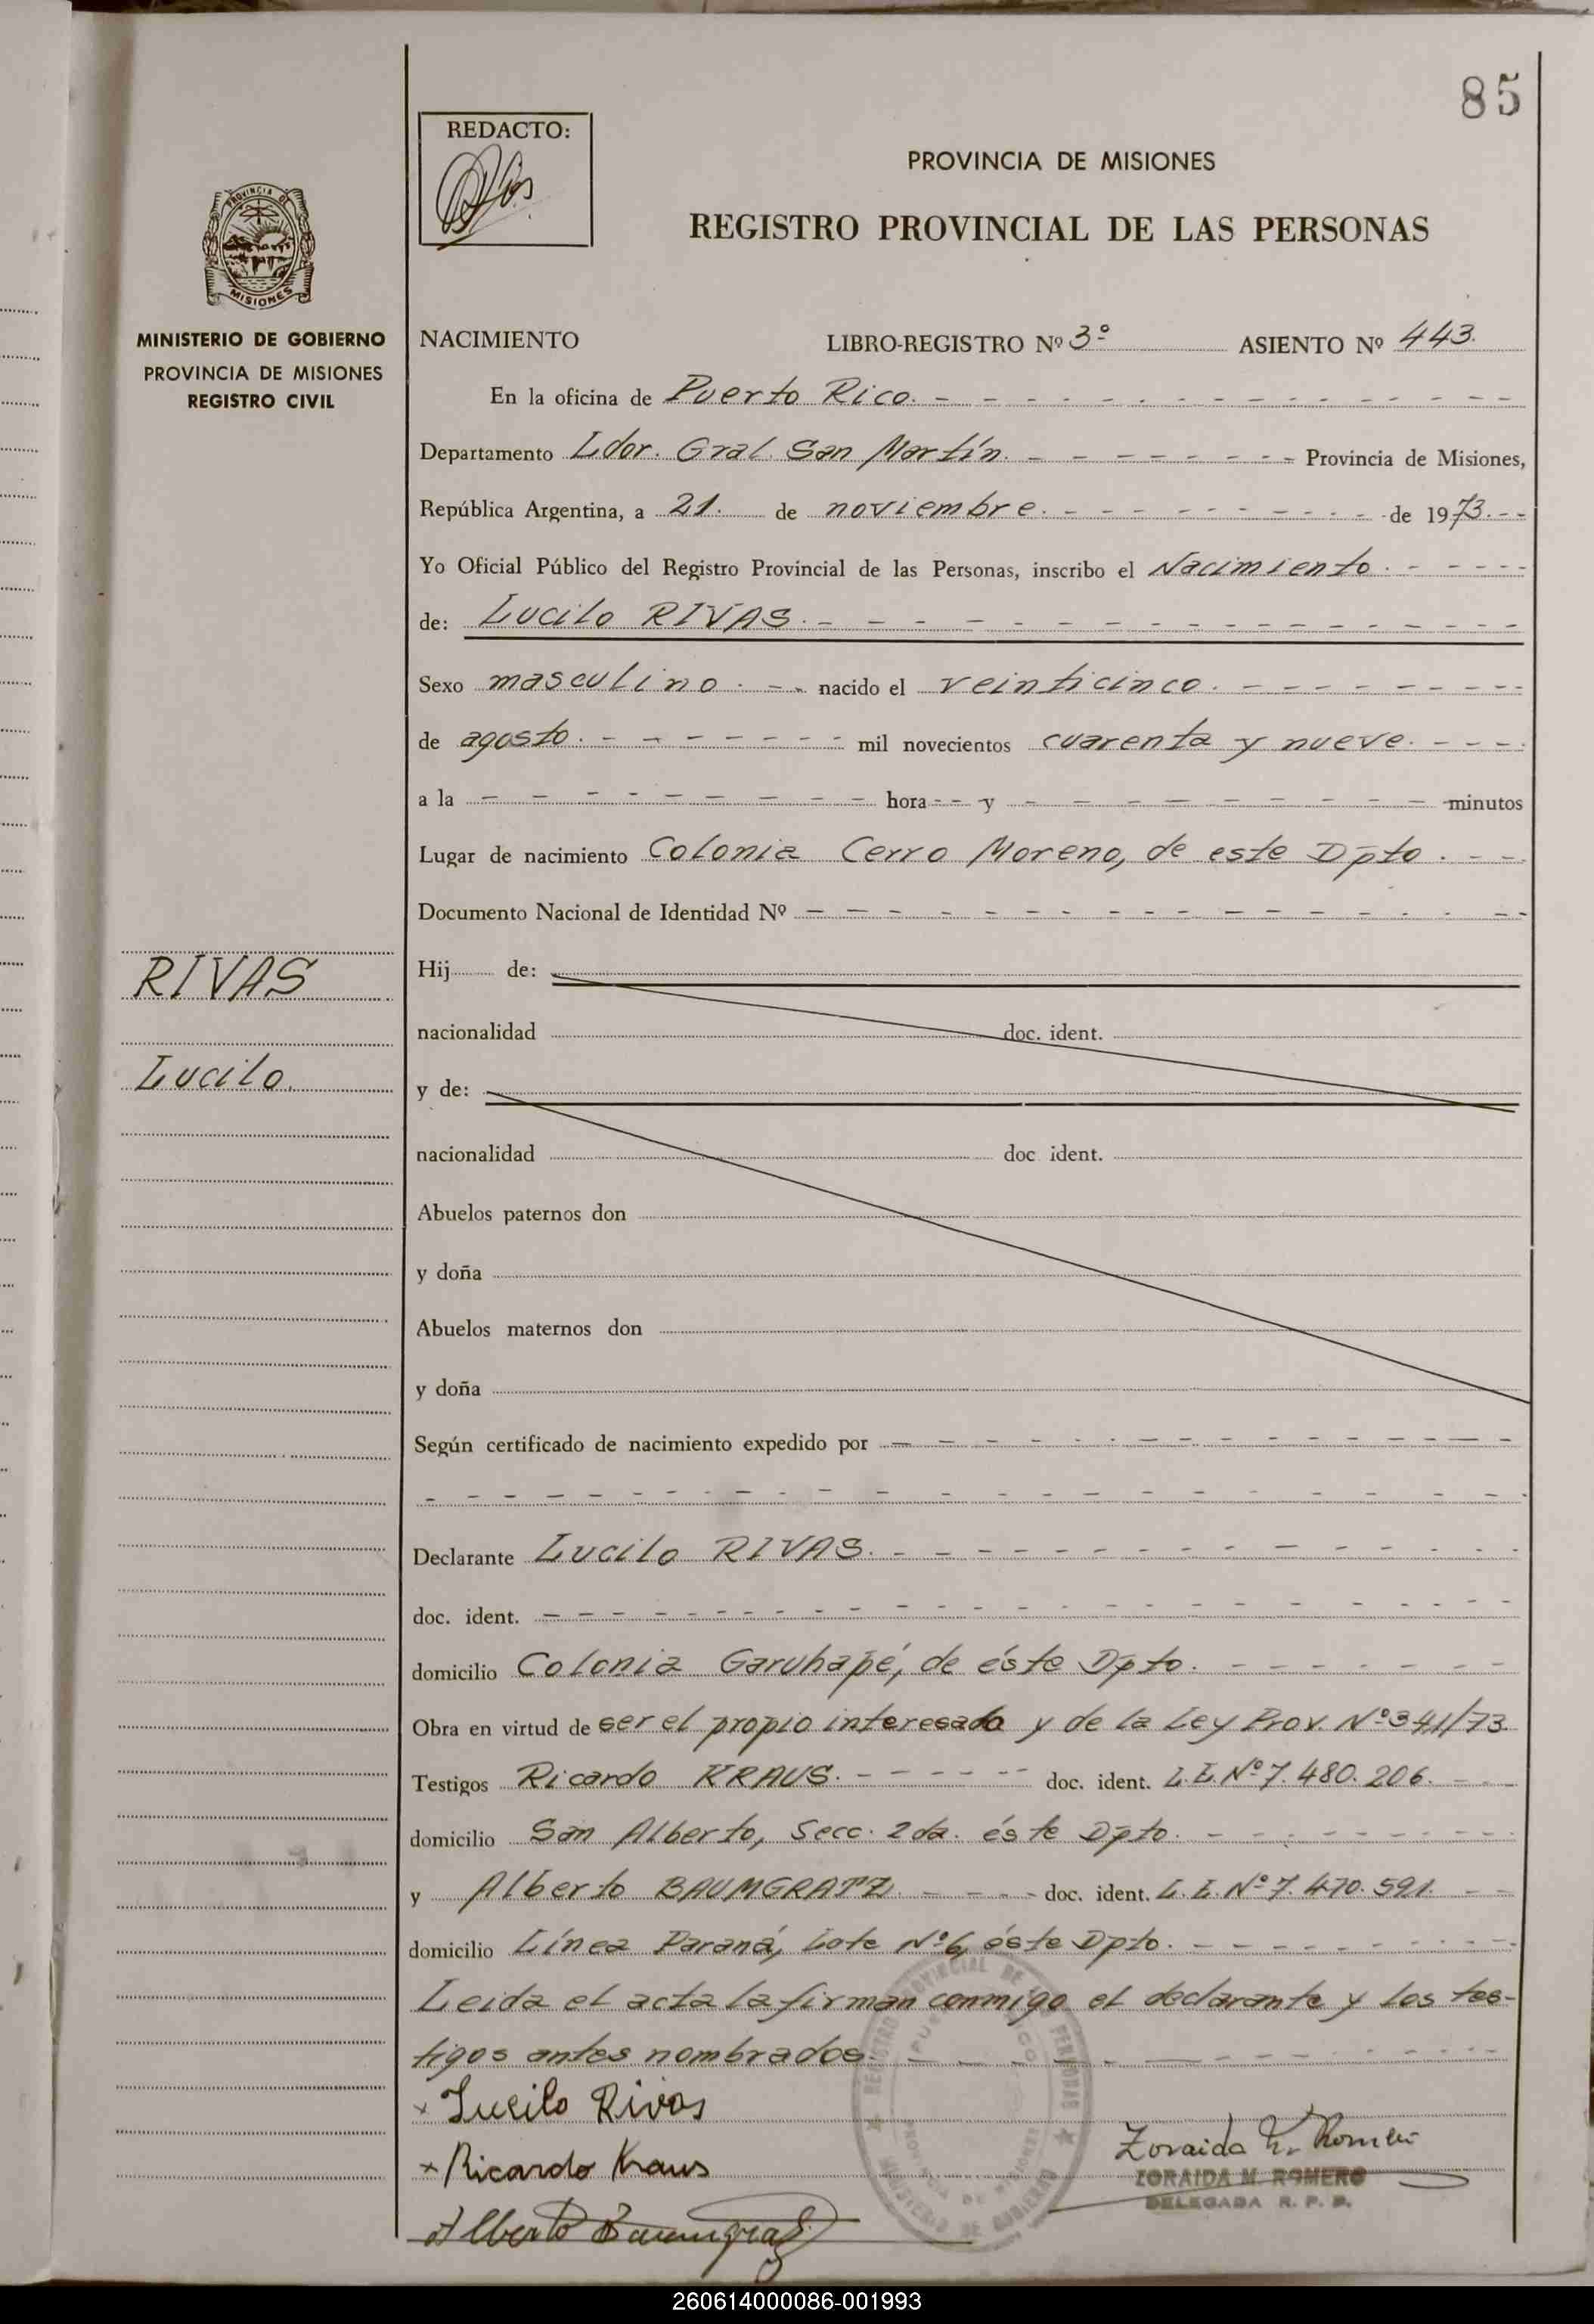 85
REDACTO:
PROVINCIA DE MISIONES
REGISTRO PROVINCIAL DE LAS PERSONAS
PROVINCIA DE
MISIONES
MINISTERIO DE GOBIERNO
PROVINCIA DE MISIONES
REGISTRO CIVIL
NACIMIENTO LIBRO-REGISTRO Nº 3º ASIENTO Nº 443.
En la oficina de Puerto Rico.
Departamento Ldor. Gral. San Martín. Provincia de Misiones,
República Argentina, a 21. de noviembre. de 1973.
Yo Oficial Público del Registro Provincial de las Personas, inscribo el Nacimiento.
de: Lucilo RIVAS.
Sexo masculino. nacido el veinticinco.
de agosto. mil novecientos cuarenta y nueve.
a la hora y minutos
Lugar de nacimiento Colonia Cerro Moreno, de este Dpto.
Documento Nacional de Identidad Nº
RIVAS
Lucilo.
Hij de:
nacionalidad doc. ident.
y de:
nacionalidad doc ident.
Abuelos paternos don
y doña
Abuelos maternos don
y doña
Según certificado de nacimiento expedido por
Declarante Lucilo RIVAS.
doc. ident.
domicilio Colonia Garuhapé, de éste Dpto.
Obra en virtud de ser el propio interesado y de la Ley Prov. Nº341/73
Testigos Ricardo KRAUS. doc. ident. L.E. Nº7.480.206.
domicilio San Alberto, Secc. 2da. éste Dpto.
y Alberto BAUMGRATZ. doc. ident. L.E. Nº7.470.591.
domicilio Línea Paraná, Lote Nº6, éste Dpto.
Leída el acta la firman conmigo el declarante y los tes-
tigos antes nombrados.
x Lucilo Rivas
x Ricardo Kraus
Alberto Baumgratz
REGISTRO PROVINCIAL DE LAS PERSONAS
PUERTO RICO
PROVINCIA DE MISIONES
MINISTERIO DE GOBIERNO
Zoraida M. Romero
ZORAIDA M. ROMERO
DELEGADA R. P. P.
260614000086-001993